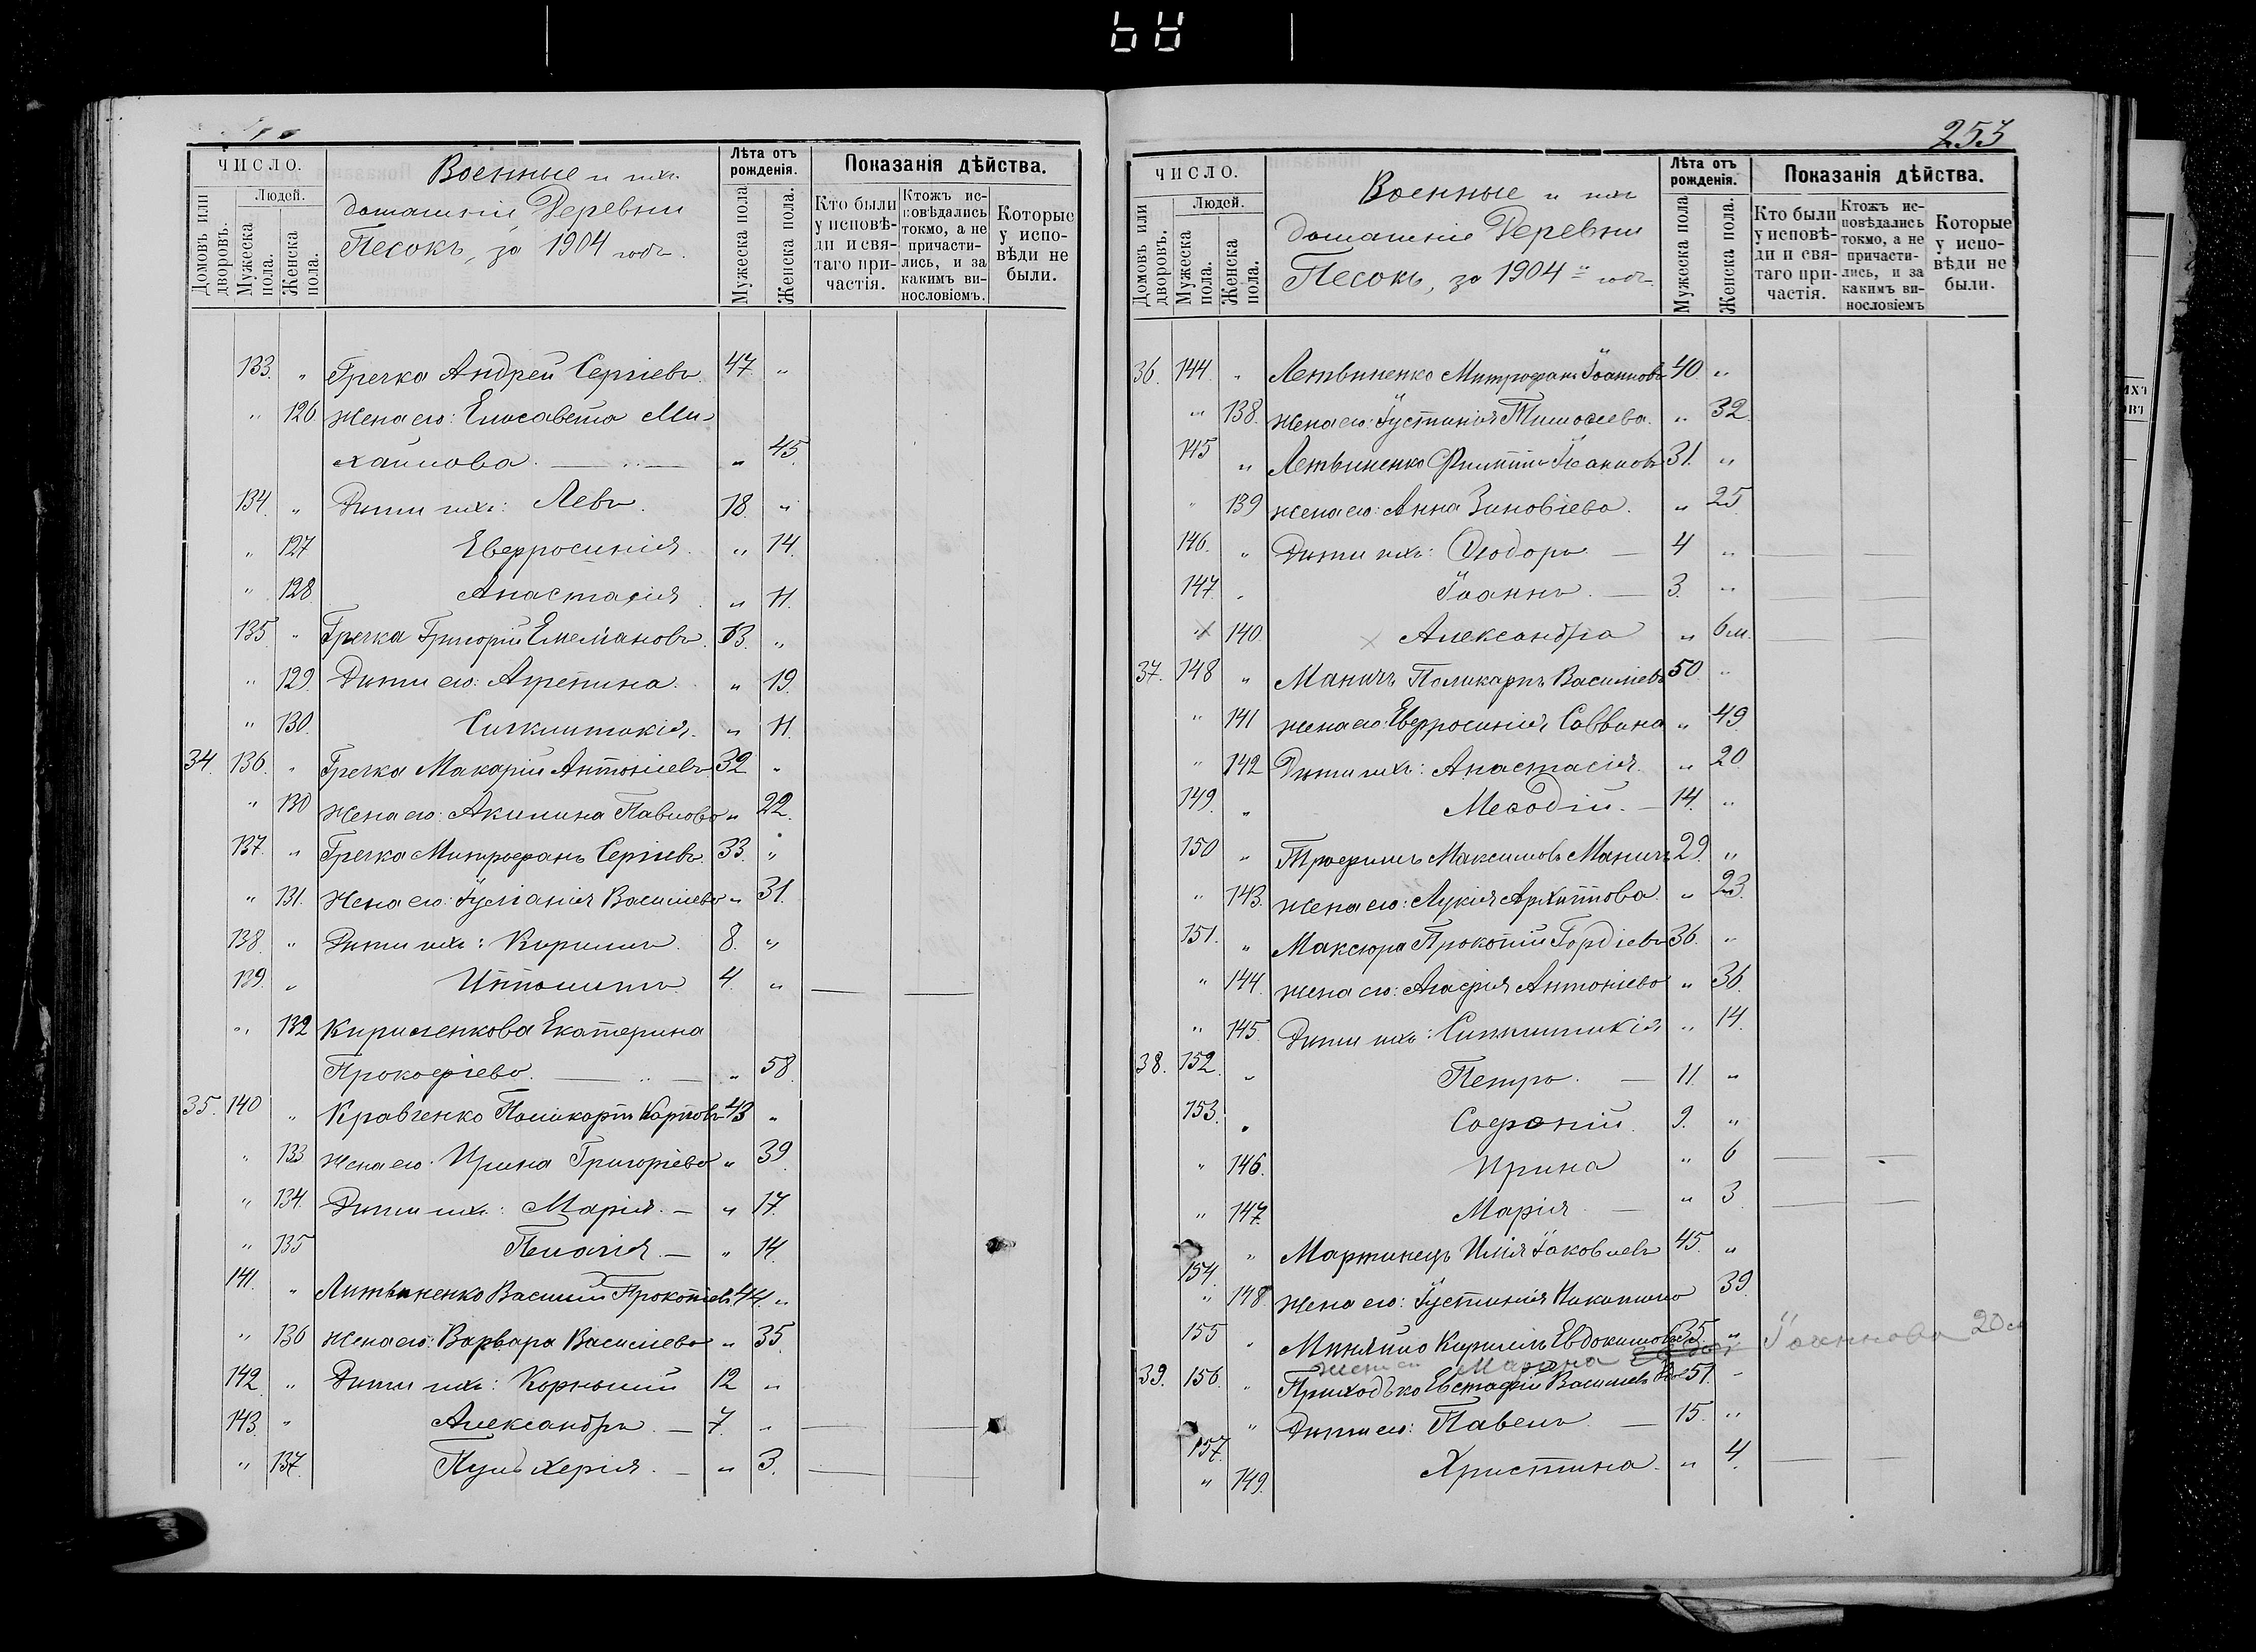 ЧИСЛО.
Людей.
Домовъ или дворовъ.
Мужеска пола.
Женска пола.
Военные и ихъ
домашніе Деревни
Песокъ, за 1904 годъ.
Лѣта отъ рожденія.
Мужеска пола
Женска пола.
Показанія дѣйства.
Кто были у исповѣди и святаго причастія.
Ктожъ исповѣдались токмо, а не причастились, и за какимъ винословіемъ.
Которые у исповѣди не были.
133. " Гречка Андрей Сергіевъ. 47 "
" 126 Жена его: Елисавета Ми-
хаилова. — " — " 45.
134. " Дѣти ихъ: Левъ. 18. "
" 127 Евфросинія. " 14.
" 128 Анастасія " 11.
135 " Гречка Григорій Емеліановъ. 63. "
" 129. Дѣти его: Агрепина. " 19.
" 130. Сигклитикія. " 11.
34. 136. " Гречка Макарій Антоніевъ 32 "
" 130 Жена его: Акилина Павлова " 22.
137. " Гречка Митрофанъ Сергіевъ. 33. "
" 131. Жена его: Іуліанія Василіева " 31.
138 " Дѣти ихъ: Кириллъ. 8. "
139. " Ипполитъ. 4. " — —
" 132 Кириленкова Екатерина
Прокофіева. — " — " 58.
35. 140 " Кравченко Поликарпъ Карповъ 43 "
" 133 Жена его: Ирина Григоріева " 39
" 134. Дѣти ихъ: Марія. — " 17.
" 135 Пелагія. — " 14.
141. " Литвиненко Василій Прокопіевъ 44. "
" 136 Жена его: Варвара Василіева " 35.
142. " Дѣти ихъ: Корнилій 12 "
143. " Александръ. — 7. " — —
" 137. Пульхерія. — " 3. — —
253
ЧИСЛО.
Людей.
Домовъ или дворовъ.
Мужеска пола.
Женска пола.
Военные и ихъ
домашніе Деревни
Песокъ, за 1904 годъ.
Лѣта отъ рожденія.
Мужеска пола
Женска пола.
Показанія дѣйства.
Кто были у исповѣди и святаго причастія.
Ктожъ исповѣдались токмо, а не причастились, и за какимъ винословіемъ
Которые у исповѣди не были.
36. 144. " Летвиненко Митрофанъ Іоанновъ 40. "
" 138. Жена его: Іустинія Тимофеева. " 32
145 " Летвиненко Филиппъ Іоанновъ 31. "
" 139 Жена его: Анна Зиновіева. " 25.
146. " Дѣти ихъ: Ѳеодоръ — 4 " — —
147. " Іоаннъ. — 3. " — —
" 140. Александра " 6 м. — —
37. 148 " Маничъ Поликарпъ Василіевъ 50. "
" 141 Жена его: Евфросинія Саввина " 49.
" 142 Дѣти ихъ: Анастасія. " 20
149. " Меѳодій. — 14. "
150 " Трофимъ Максимовъ Маничъ 29. "
" 143. Жена его: Лукія Архиппова. " 23.
151. " Максюра Прокопій Гордіевъ 36. "
" 144. Жена его: Агафія Антоніева " 36.
" 145. Дѣти ихъ: Синклитикія " 14.
38. 152. " Петръ. — 11. "
153. " Софоній. 9. "
" 146. Ирина " 6 — —
" 147 Марія — " 3. — —
154. " Мартинецъ Илія Іаковлевъ 45. "
" 148. Жена его: Іустинія 39.
155 " Кириллъ Евдокимовъ 35. "
Марина Іоаннова 20
39. 156. " Приходько Евстафій Василіевъ 51. "
157. " Дѣти его: Павелъ. — 15. "
" 149. Христина. " 4. — —